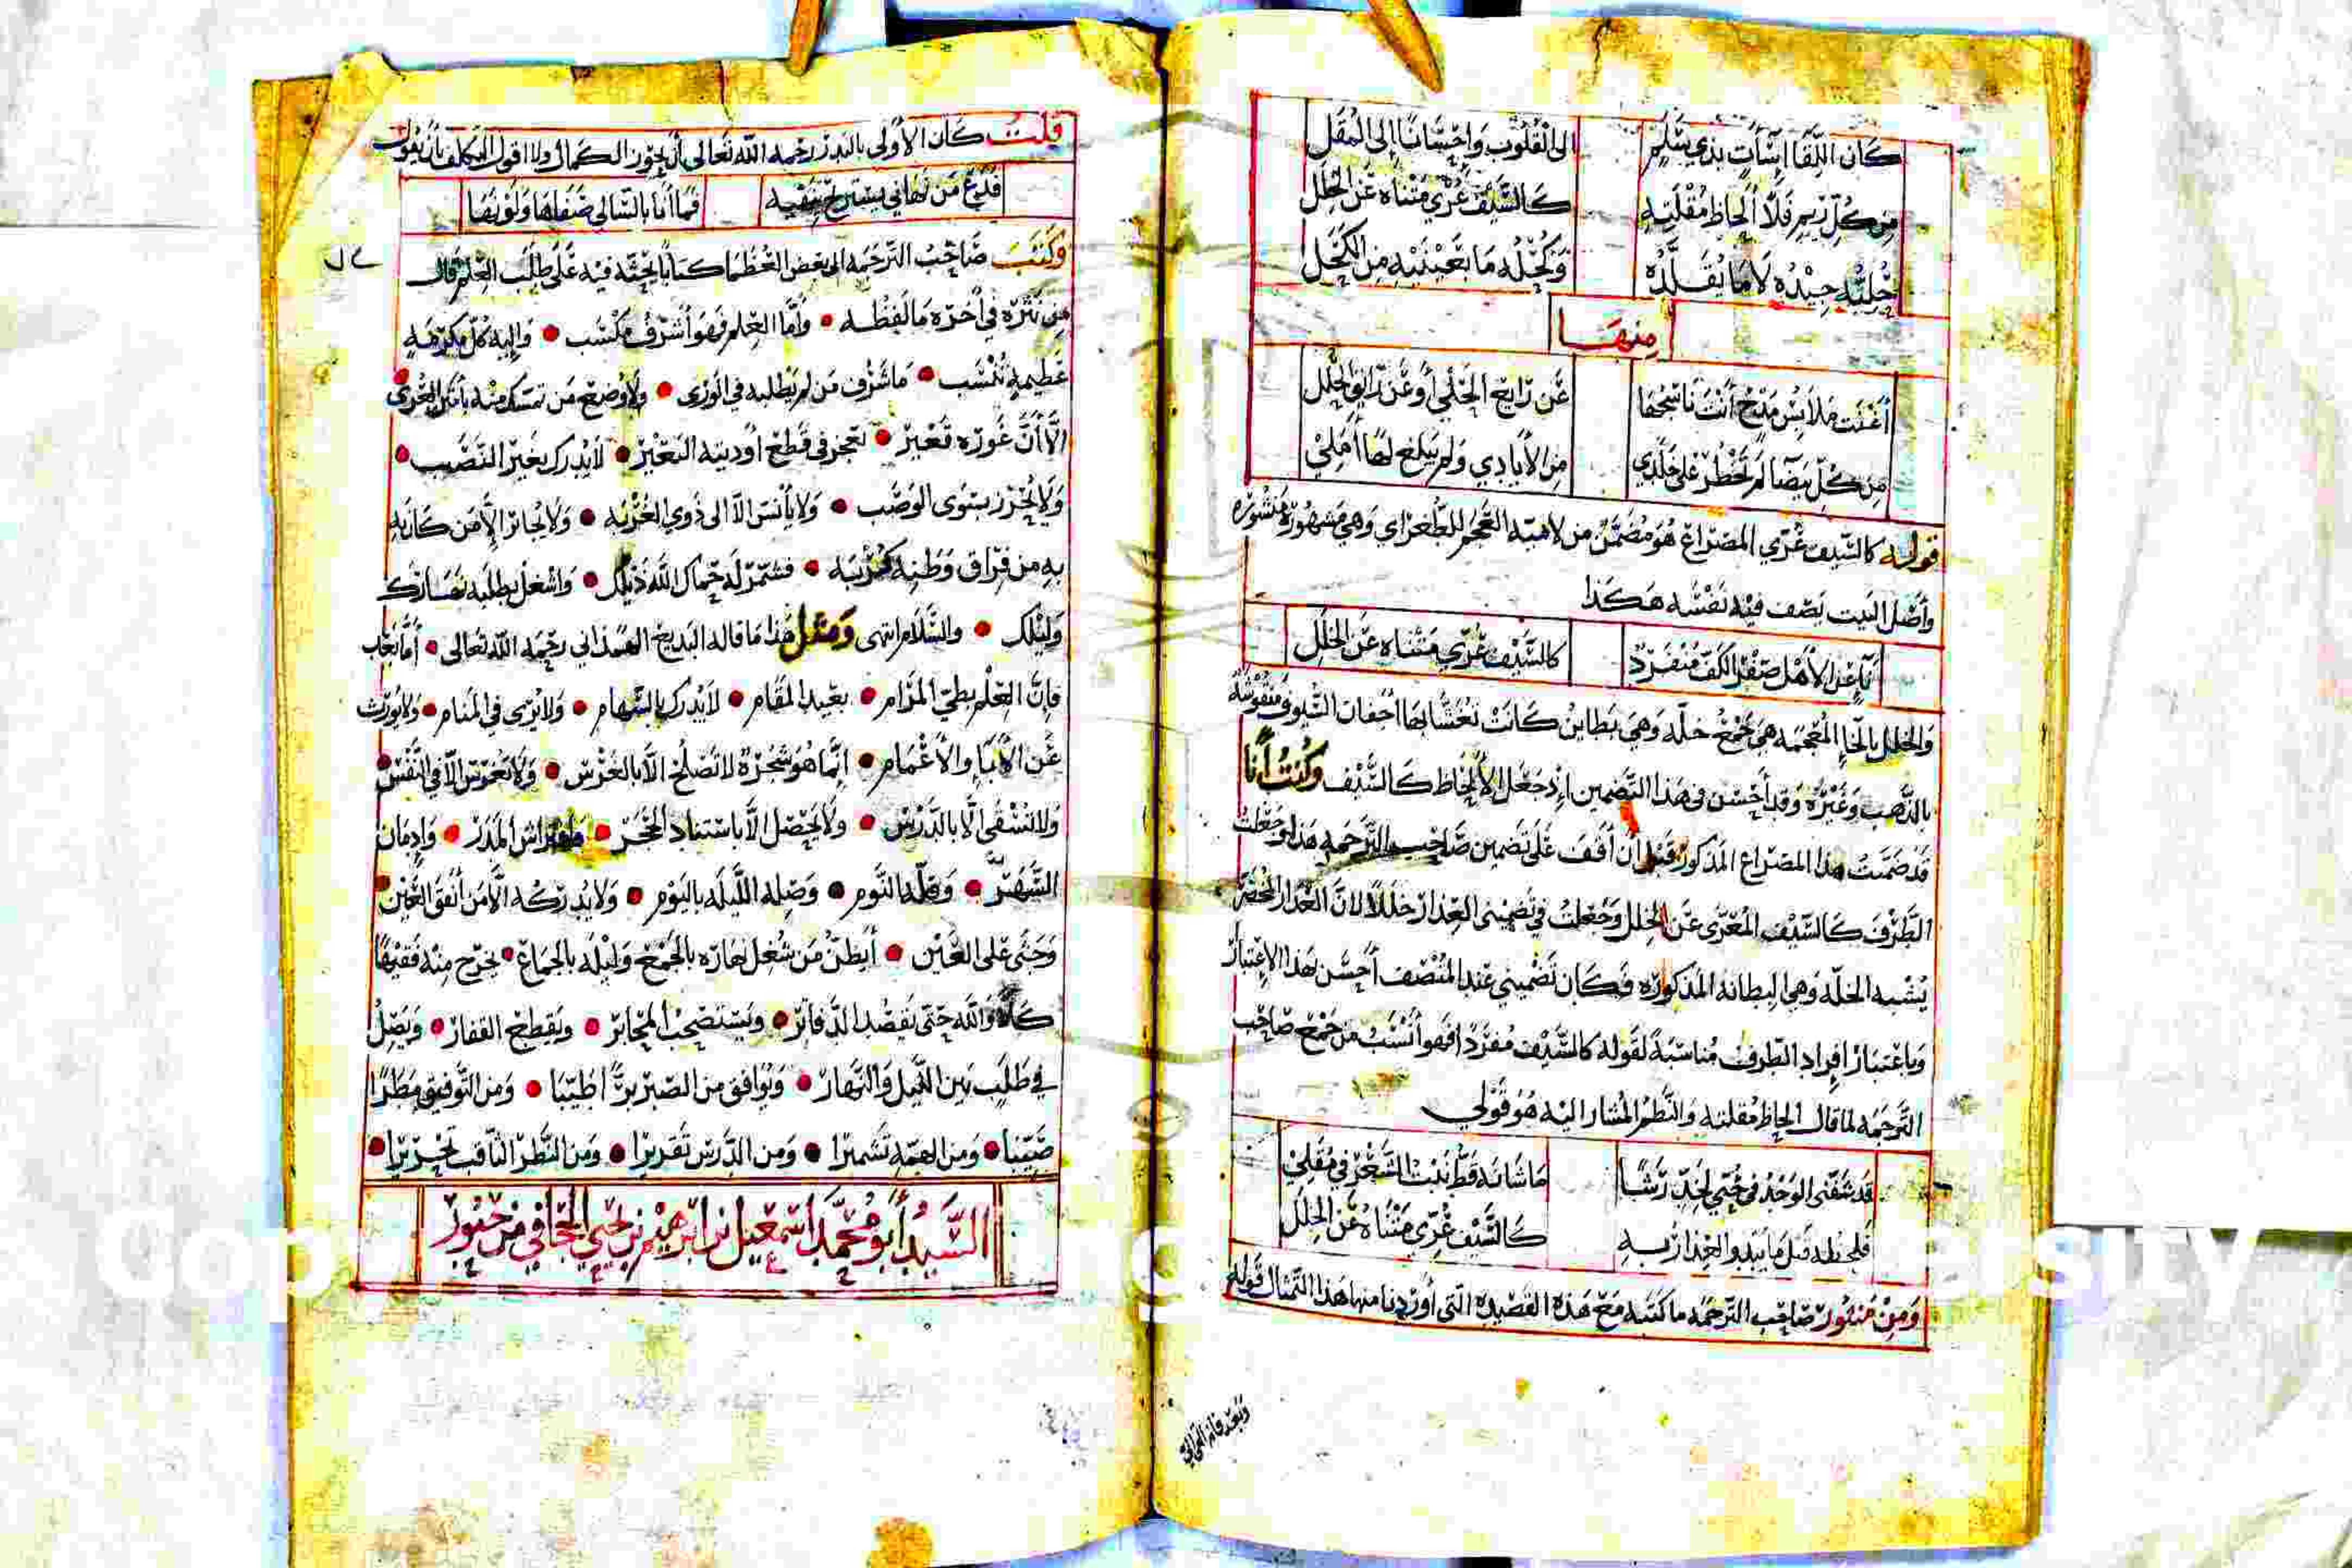 كان اللقا إساآت بذي سلم الى القلوب وإحسانا إلى المقل
من كل ريم فلا ألحاظ مقلته كالسيف عري متناه عن الخلل
حليه جيده لا ما يقلده وكحله ما بعينيه من الكحل
منها
أغنت ملابس مدح أنت ناسجها عن رايع الحلي أو عن رايق الحلل
من كل بيضا لم تخطر على خلدي من الأيادي ولم يبلغ لها أملي
قوله كالسيف عري المصراع هو مضمن من لامية العجم للطغراي وهي مشهورة منشوره
وأصل البيت يصف فيه نفسه هكذا
ناء عن الأهل صفر الكف منفرد كالسيف عري متناه عن الخلل
والخلل بالخاء المعجمه هي جمع خله وهي بطاين كانت تغشا بها أجفان السيوف منقوشة
بالذهب وغيره وقد أحسن في هذا التضمين إذ جعل الألحاظ كالسيف وكنت أنا
قد ضمنت هذا المصراع المذكور قبل أن أقف على تضمين صاحب الترجمه هذا وجعلت
الطرف كالسيف المعرى عن الخلل وجعلت في تضميني العذار خللا لان العذار المخضر
يشبه الخله وهي البطانه المذكوره فكان تضميني عند المنصف أحسن لهذا الاعتبار
وباعتبار افراد الطرف مناسبة لقوله كالسيف مفردا فهو أنسب من جمع صاحب
الترجمه لما قال الحاظ مقلته والنظم المشار اليه هو قولي
قد شفني الوجد في حبي لخد رشا ما شانه قط نبت الشعر في مقلي
فلحظه قبل ما يبدو العذار به كالسيف عري متناه عن الخلل
ومن منثور صاحب الترجمه ما كتبه مع هذه القصيده التي أوردنا منها هذا المثال قوله
وبعد فان
قلت كان الأولى بالبدر رحمه الله تعالى أن يحوز الكمال ولا اقول التكلف بأن يقول
فدع من نهاني يستريح بنفيه فما أنا بالسالي ضناها ولو نها
وكتب صاحب الترجمه الى بعض العظما كتابا يحثه فيه على طلب العلم قال
من نثره في أخره ما لفظه وأما العلم فهو أشرف مكتسب وإليه كل مكرمه
عظيمه تنتسب ما شرف من لم يطلبه في الورى ولا وضع من تمسك منه بأمتن العرى
الا أن غوره قعير تعجز في قطع أوديته البعير لا يدرك بغير النصب
ولا يحرز بسوى الوصب ولا يأنس الا الى ذوي الغربه ولا يجاز الا من كان به
به من فراق وطنه كربه فشمر له حماك الله ذيلك واشغل بطلبه نهارك
وليلك والسلام انتهى ومثل هذا ما قاله البديع الهمذاني رحمه الله تعالى أما بعد
فإن العلم بطي المرام بعيد المقام لا يدرك بالسهام ولا يرى في المنام ولا يورث
عن الأباء والأعمام انما هو شجرة لا تصلح الا بالغرس ولا تغرس الا في النفس
ولا تسقى الا بالدرس ولا يحصل الا باستناد الحجر وافتراش المدر وإدمان
السهر وقلة النوم وصلة الليله باليوم ولا يدركه الا من أنفق العين
وحثى على العين أيظن من شغل نهاره بالجمع وليله بالجماع يخرج منه فقيها
كلا والله حتى يقصد الدفاتر ويستصحب المحابر ويقطع القفار ويصل
في طلبه بين الليل والنهار ويوافق من الصبر برا طيبا ومن التوفيق مطرا
صيبا ومن الهمه تشميرا ومن الدرس تقريرا ومن النظر الثاقب تحريرا
السيد أبو محمد اسمعيل بن ابرهيم بن يحيى الجحافي من حبور